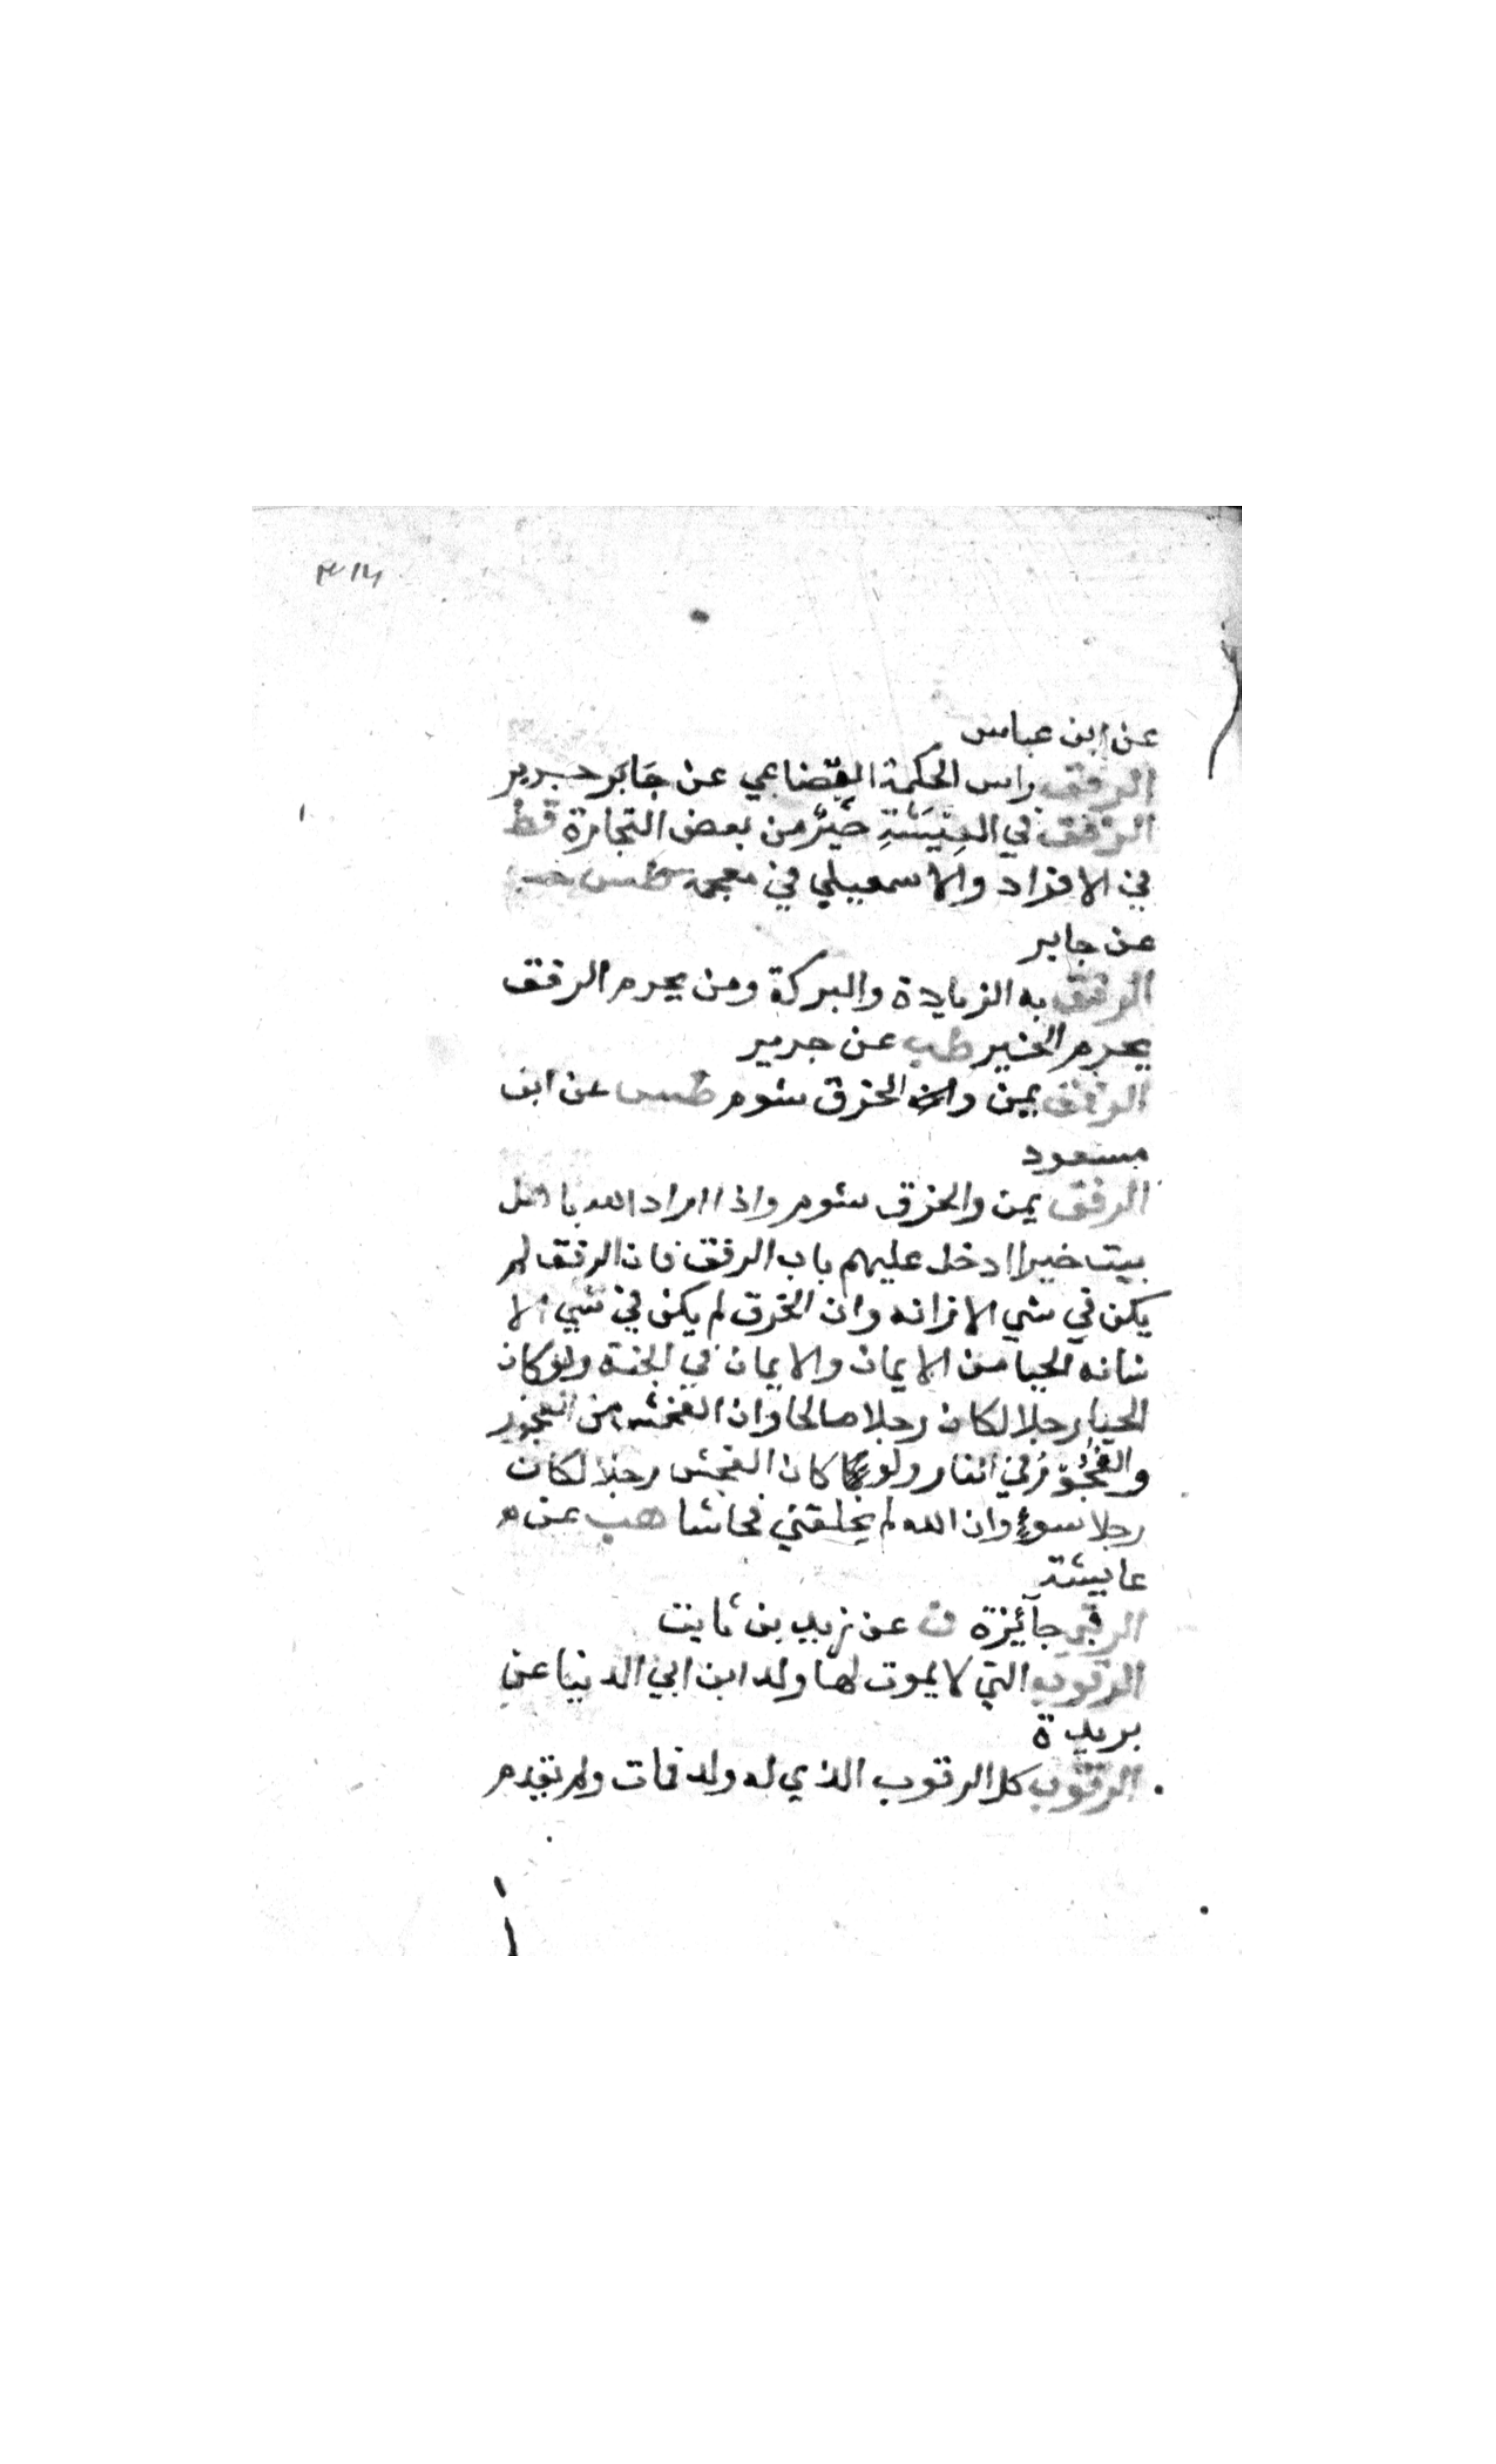 عن ابن عباس
الرفق راس الحكمة القضاعي عن جابر جرير
الرفق في المعيشة خير من بعض التجارة قط
في الافراد والاسمعيلي في معجمه طس هب
عن جابر
الرفق به الزيادة والبركة ومن يحرم الرفق
يحرم الخير طب عن جرير
الرفق يمن والخرق شوم طس عن ابن
مسعود
الرفق يمن والخرق شوم واذا اراد الله باهل
بيت خيرا ادخل عليهم باب الرفق فان الرفق لم
يكن في شي الا زانه وان الخرق لم يكن في شي الا
شانه الحيا من الايمان والايمان في الجنة ولو كان
الحيا رجلا لكان رجلا صالحا وان الفحش من الفجور
والفجور في النار ولو كان الفحش رجلا لكان
رجلا سوء وان الله لم يخلقني فحاشا هب عن
عايشة
الرقبى جآئزة ن عن زيد بن ثابت
الرقوب التي لا يموت لها ولد ابن ابي الدنيا عن
بريدة
الرقوب كل الرقوب الذي له ولد فمات ولم يقدم